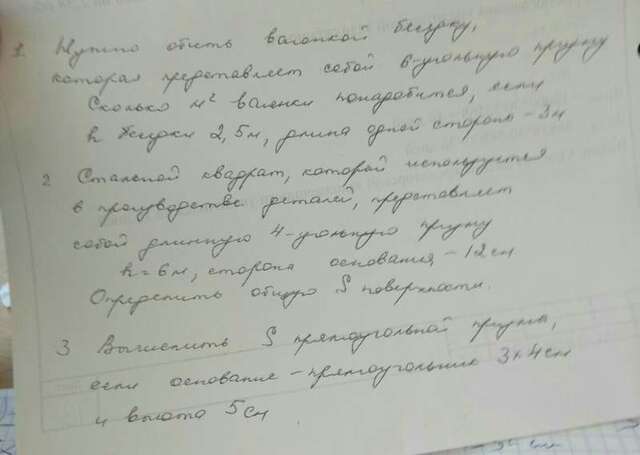 1. Нужно обить вагонкой беседку,
которая представляет собой 6-угольную призму
Сколько м² вагонки понадобится, если
h беседки 2,5м, длина одной стороны - 3м
2 Стальной квадрат, который используется
в производстве деталей, представляет
собой длинную 4-угольную призму
h = 6 м, сторона основания - 12 см.
Определить общую S поверхности.
3 Вычислить S прямоугольной призмы,
если основание - прямоугольник 3х4см
и высота 5см